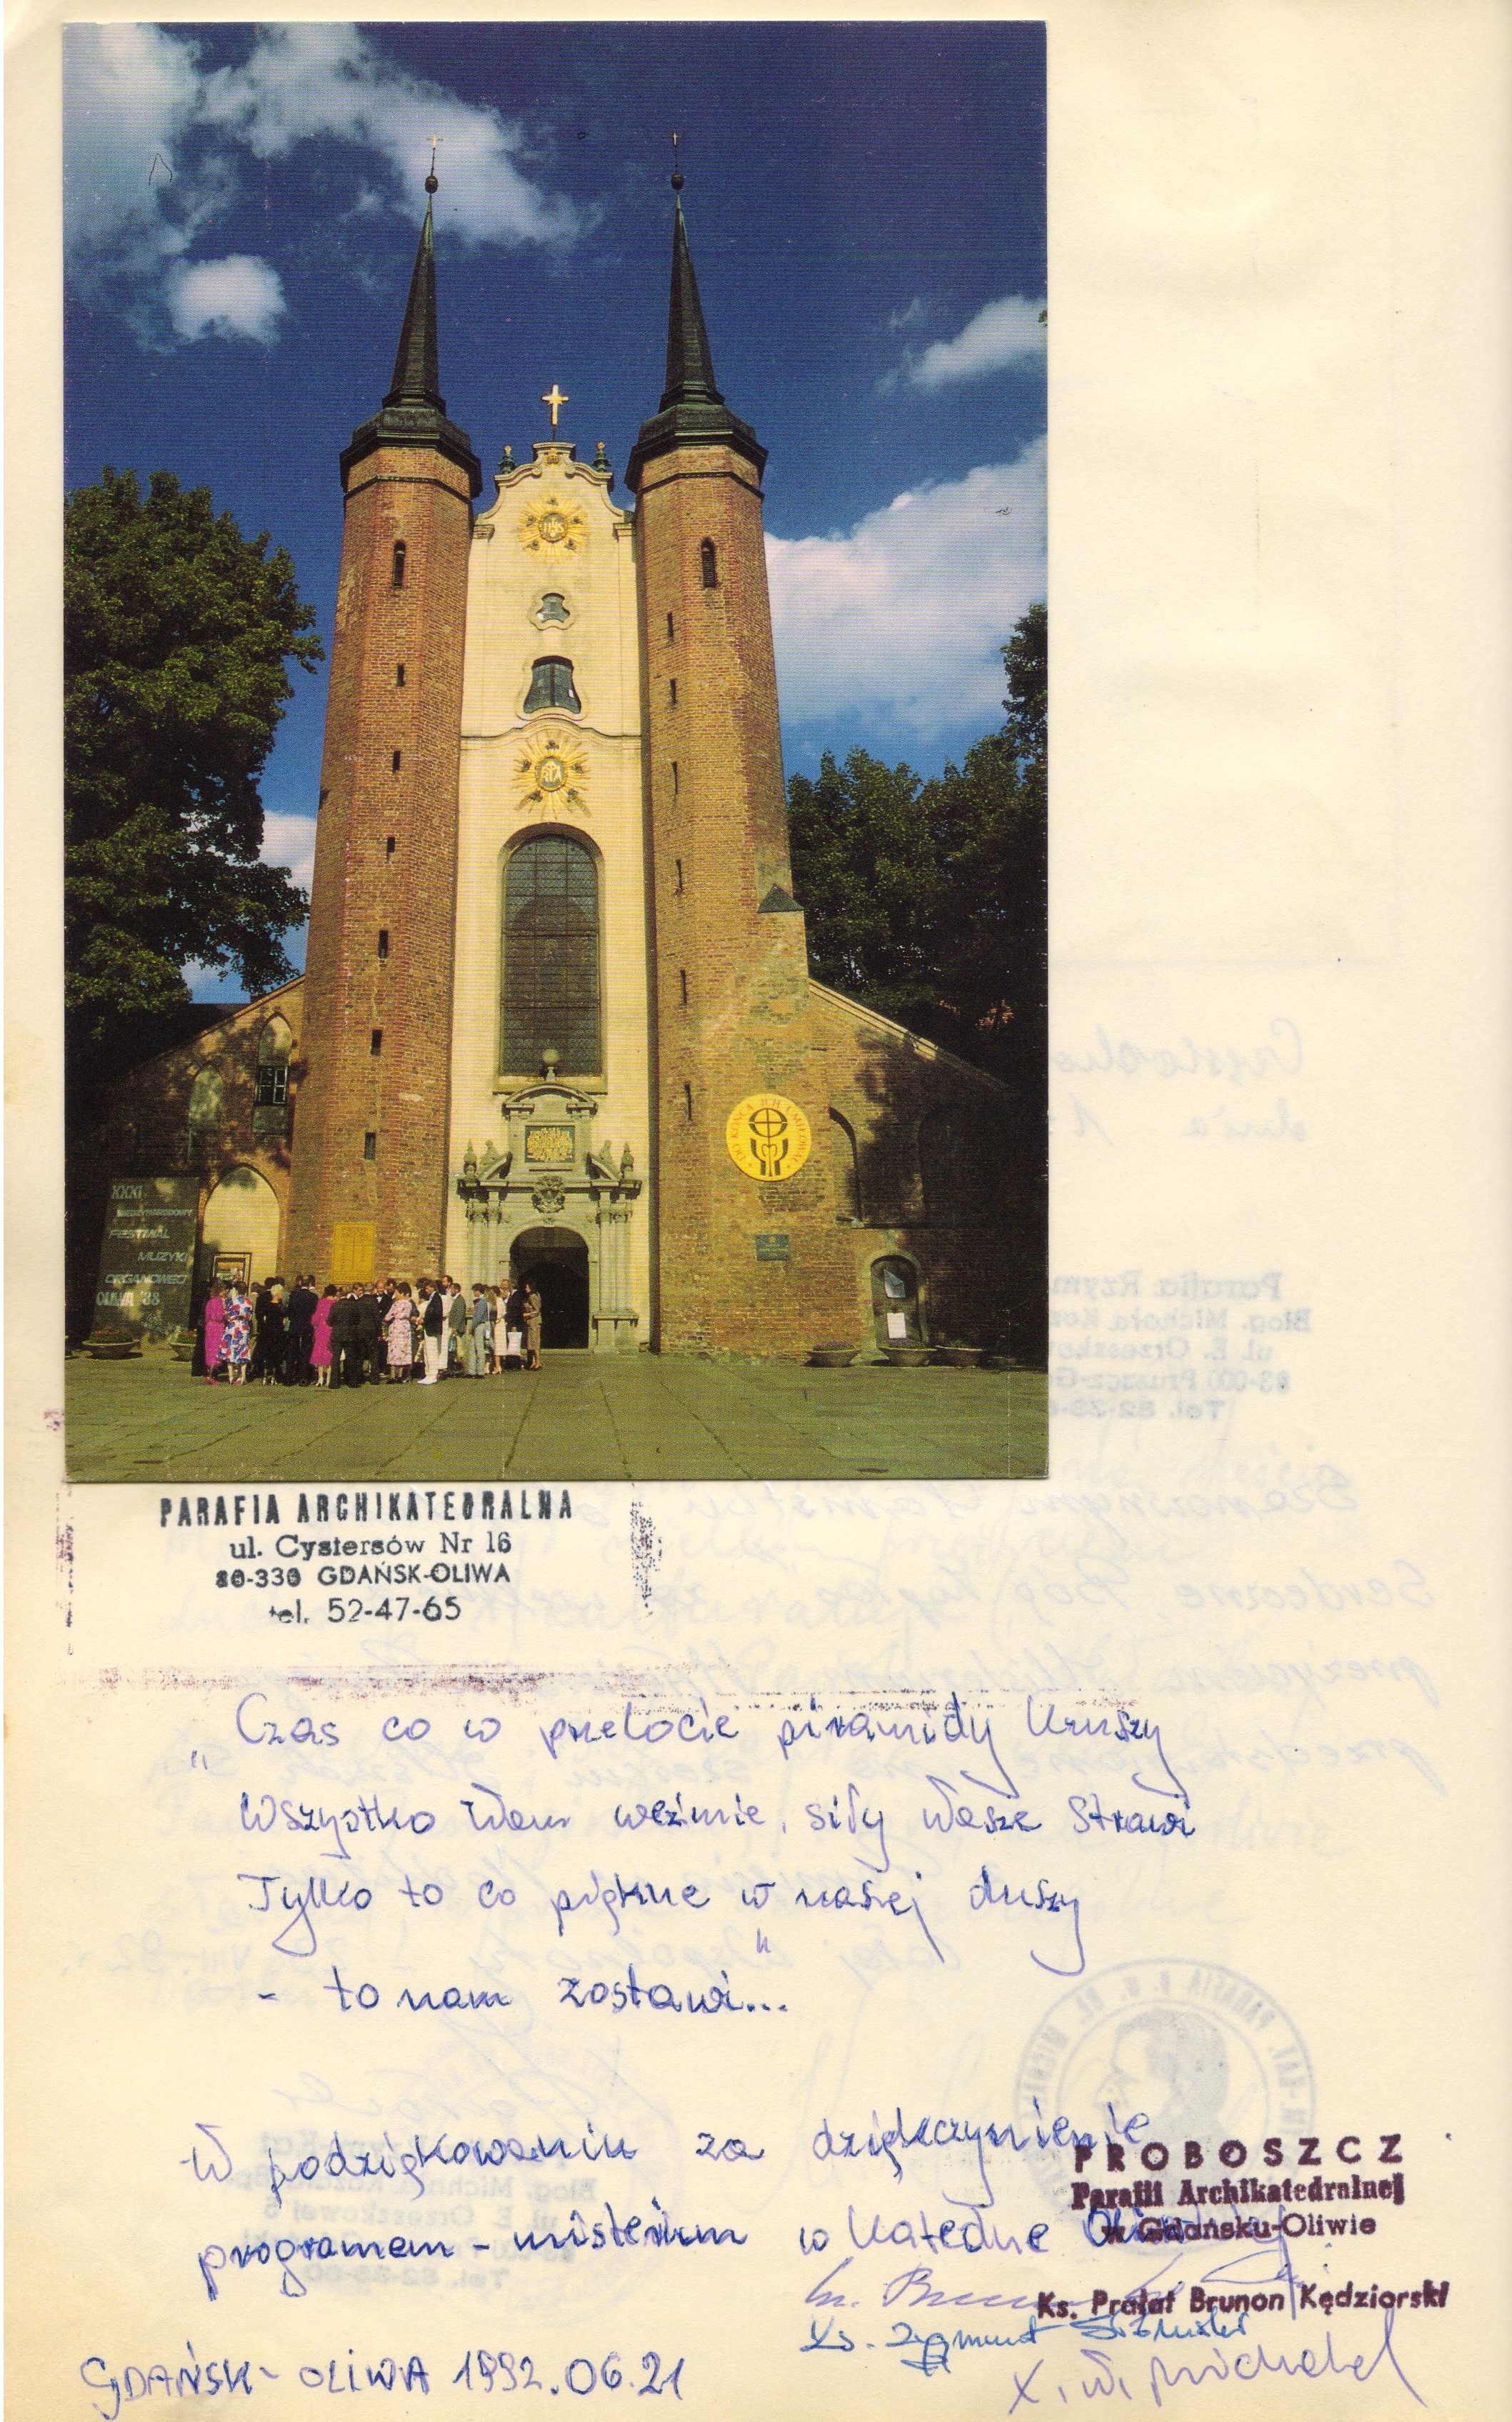 XXXI
MIĘDZYNARODOWY
FESTIWAL
MUZYKI
ORGANOWEJ
OLIWA '88
PARAFIA ARCHIKATEDRALNA
ul. Cystersów Nr 16
80-330 GDAŃSK-OLIWA
tel. 52-47-65
„Czas co w przelocie piramidy kruszy
Wszystko Wam weźmie, siły Wasze strawi
Tylko to co piękne w naszej duszy
- to nam zostawi..."
W podziękowaniu za dziękczynienie
programem - misterium w Katedrze Oliwskiej
PROBOSZCZ
Parafii Archikatedralnej
w Gdańsku-Oliwie
Ks. Prałat Brunon Kędziorski
Ks. Zygmunt
GDAŃSK - OLIWA 1992.06.21